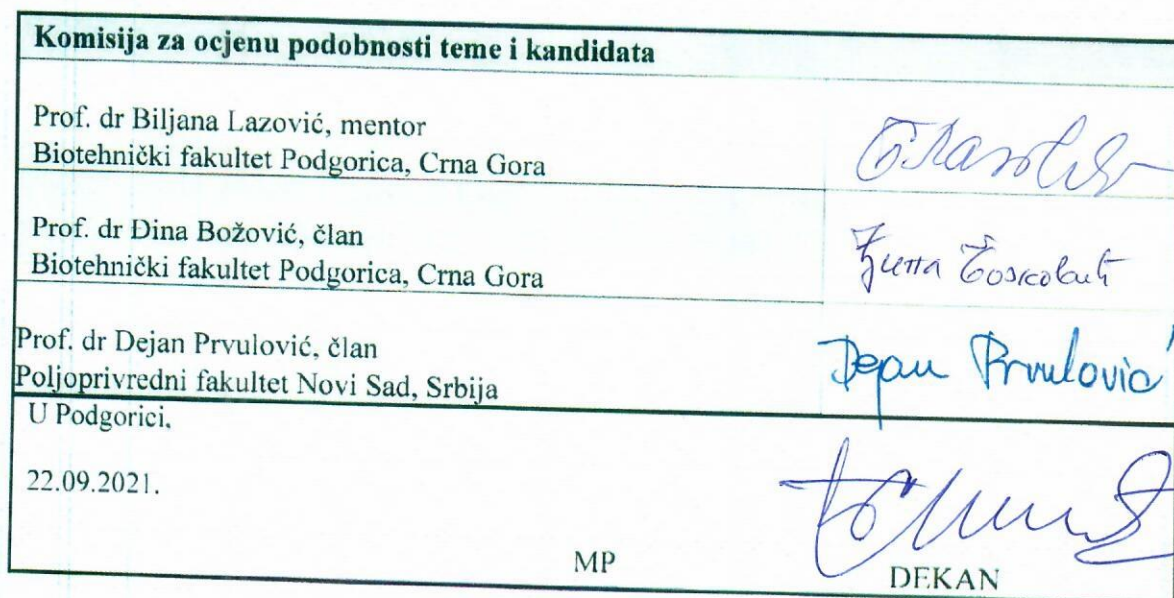 Komisija za ocjenu podobnosti teme i kandidata
Prof. dr Biljana Lazović, mentor
Biotehnički fakultet Podgorica, Crna Gora
Prof. dr Đina Božović, član
Biotehnički fakultet Podgorica, Crna Gora
Ђина Божовић
Prof. dr Dejan Prvulović, član
Poljoprivredni fakultet Novi Sad, Srbija
Dejan Prvulović
U Podgorici,
22.09.2021.
MP
DEKAN